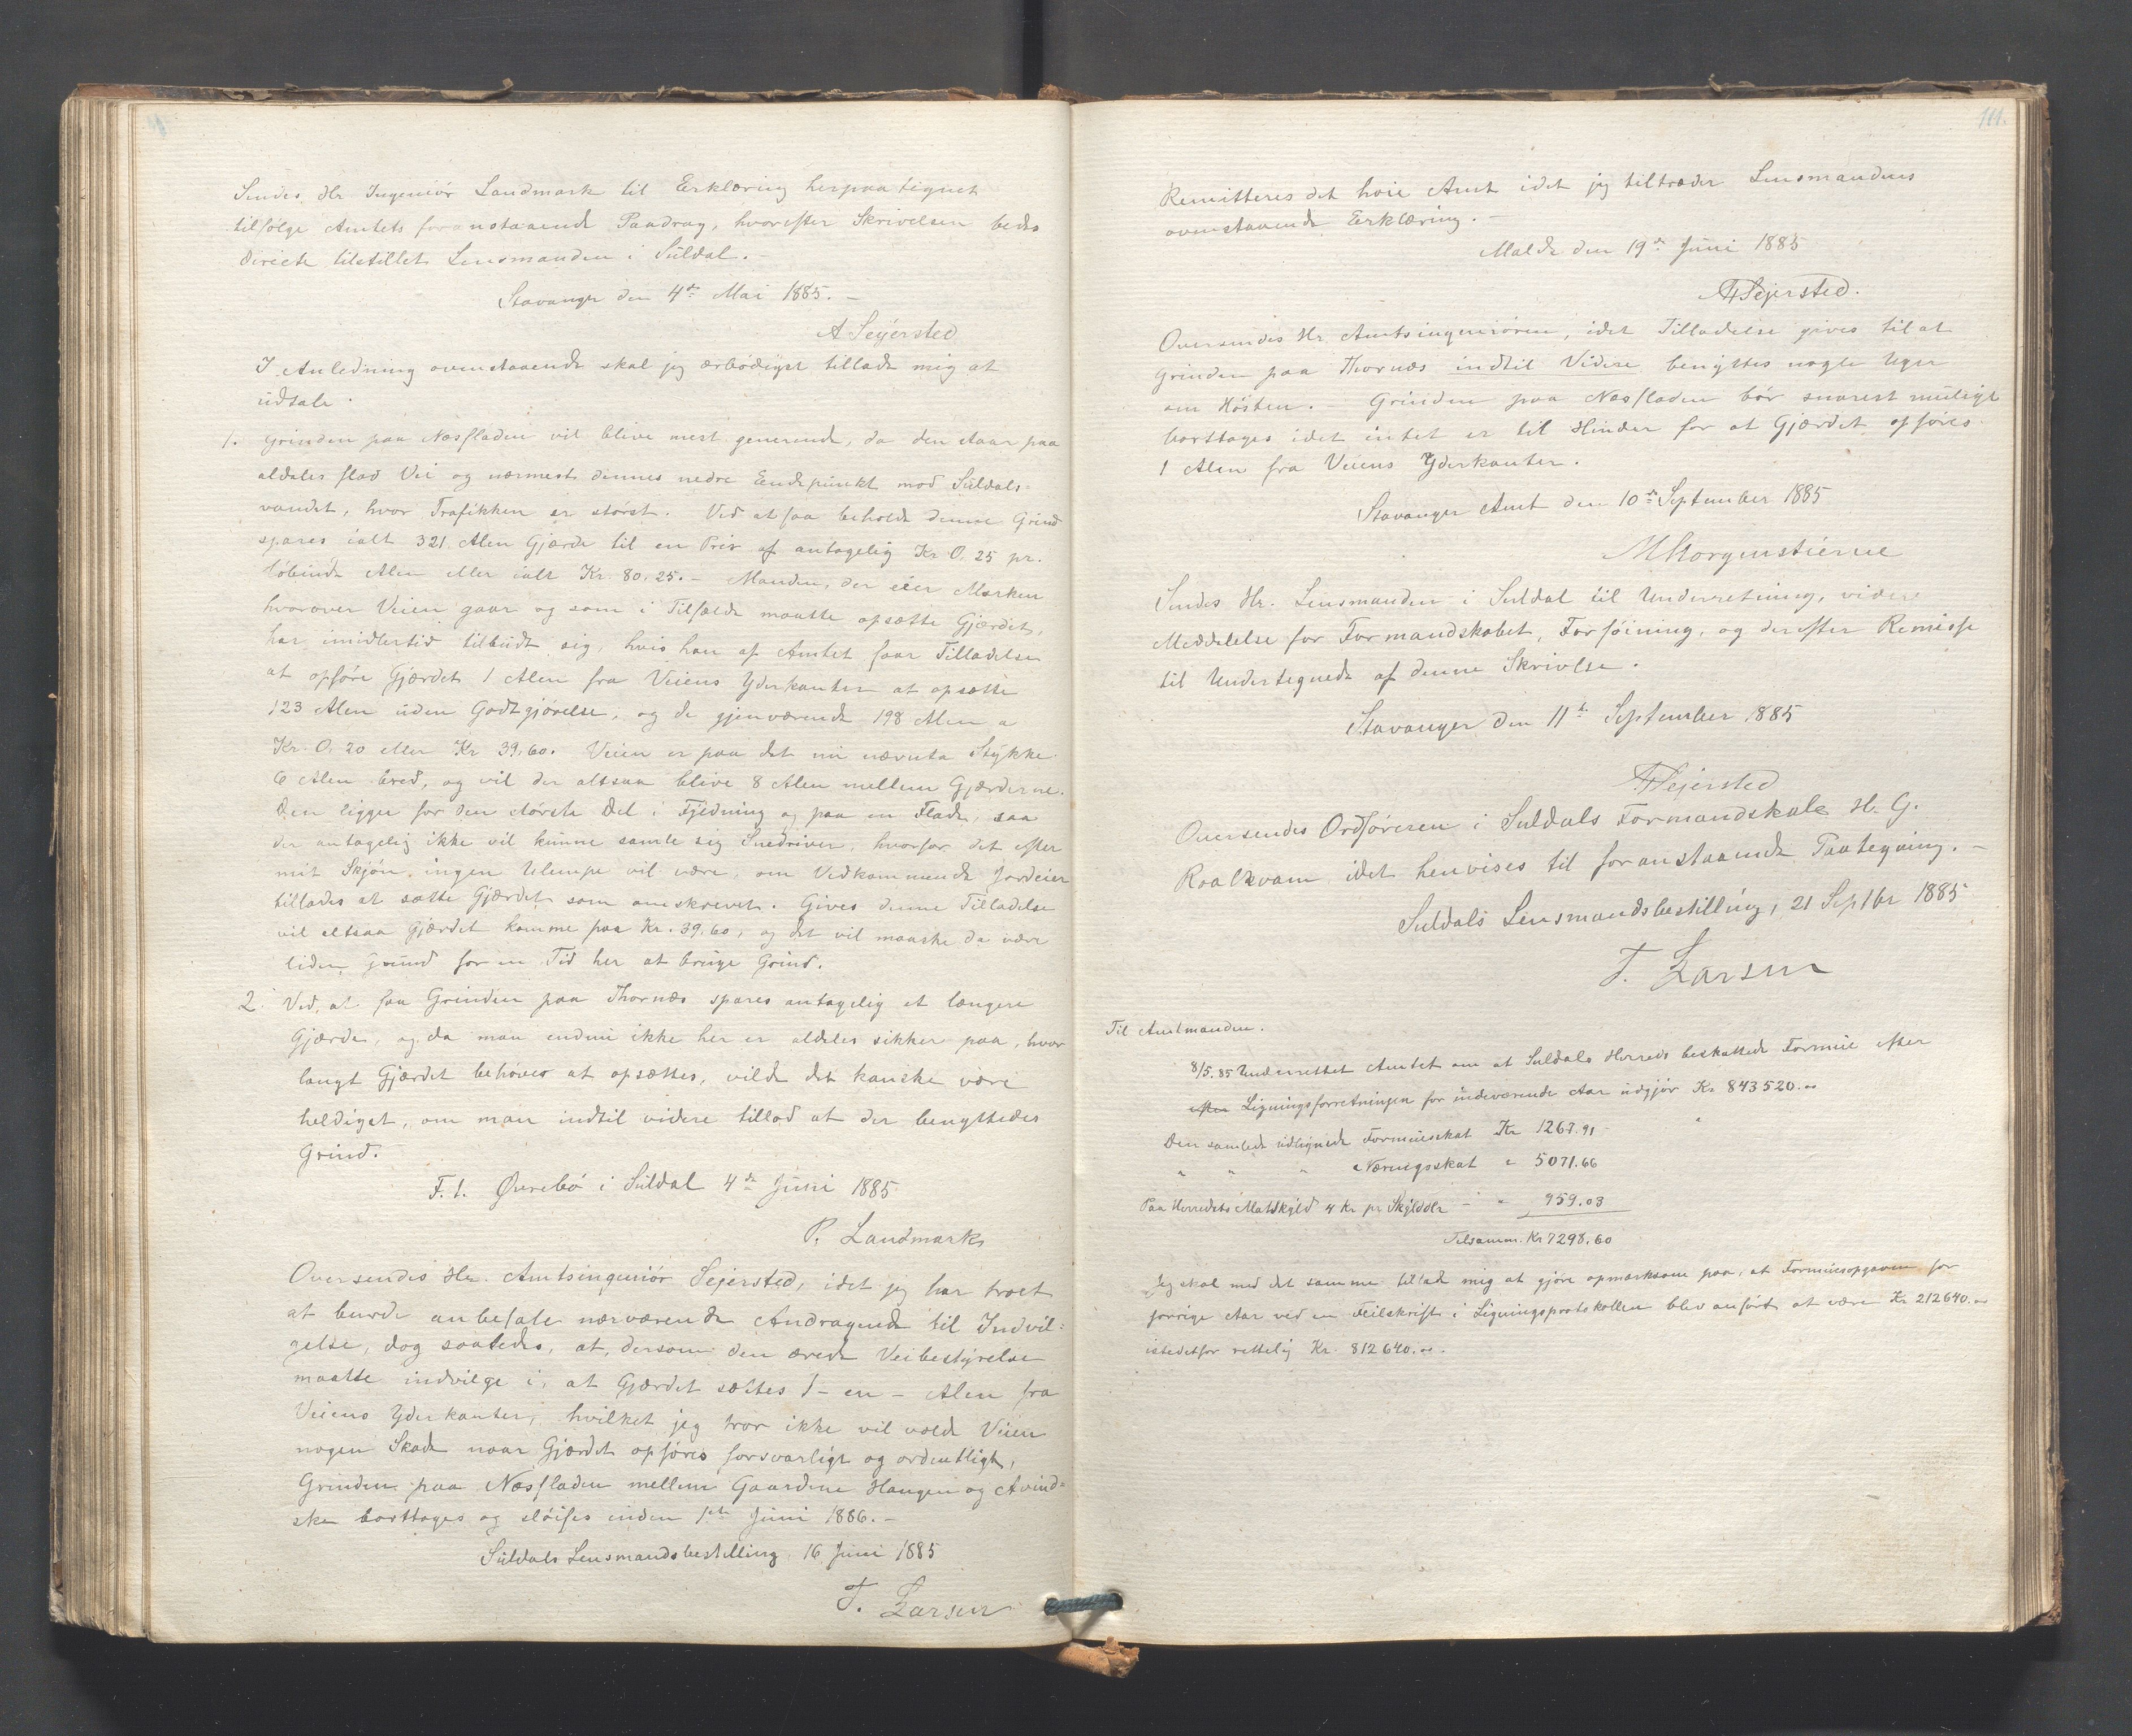 Sendes Hr Ingeniör Landmark til Erklæring herpaa tegnet
tilfölge Amtets foranstaaende Paadrag, hvorefter Skrivelsen bedes
Directe tilstillet Lensmanden i Suldal.-
Stavanger den 4de Mai 1885.-
A Sejersted
I Anledning ovenstaaende skal jeg ærbödigst tillade mig at
udtale.
1. Grinden paa Næsfladen vil blive mest generende, da den staar paa
aldeles flad Vei og nærmest dennes nedre Endepunkt mod Suldals=
vandet, hvor Trafikken er störst. Ved at faa beholde denne Grind
spares ialt 321 Alen Gjærde til en Pris af antagelig Kr 0.25 pr.
löbende Alen eller ialt Kr. 80.25.- Manden, der eier Marken
hvorover Veien gaar og som i Tilfælde maatte opsætte Gjærdet,
har imidlertid tilbudt sig, hvis han af Amtet faar Tilladelse
at opföre Gjærdet 1 Alen fra Veiens Yderkanter at opsætte
123 Alen uden Godtgjörelse, og de gjenværende 198 Alen a
Kr. 0.20 eller Kr 39.60. Veien er paa det nu nævnte Stykke
6 Alen bred, og vil der altsaa blive 8 Alen mellem Gjærderne.
Den ligger for den störste Del i Fyldning og paa en Flade, saa
der antagelig ikke vil kunne samle sig Snedriver, hvorfor det efter
mit Skjön, ingen Ulempe vil være, om Vedkommende Jordeier
tillades at sætte Gjærdet som omskrevet. Gives denne Tilladelse
vil altsaa Gjærdet komme paa Kr. 39.60, og det vil maaske da være
liden Grund for en Tid her at bruge Grind.
2. Ved at faa Grinden paa Thornæs spares antagelig et længere
Gjærde, og da man endnu ikke her er aldeles sikker paa, hvor
langt Gjærdet behöves at opsættes, vilde det kanske være
heldigst, om man indtil videre tillod at der benyttedes
Grind.
F. t. Øvrebö i Suldal 4de Juni 1885
P. Landmark
Oversendes Hr. Amtsingeniör Sejersted, idet jeg har troet
at burde anbefale nærværende Andragende til Indvil=
gelse, dog saaledes, at, dersom den ærede Veibestyrelse
maatte indvilge i, at Gjærdet sættes 1 - en - Alen fra
Veiens Yderkanter, hvilket jeg tror ikke vil volde Veien
nogen Skade naar Gjærdet opföres forsvarligt og ordentligt,
Grinden paa Næsfladen mellem Gaardene Haugen og Avind=
ske borttages og slöifes inden 1ste Juni 1886.-
Suldals Lensmandsbestilling 16 Juni 1885
T. Larsen
111.
Remitteres det höie Amt idet jeg tiltræder Lensmandens
ovenstaaende Erklæring.-
Malde den 19de Juni 1885
A Sejersted.
Oversendes Hr. Amtsingeniören, idet Tilladelse gives til at
Grinden paa Thornæs indtil Videre benyttes nogle Uger
om Hösten.- Grinden paa Næsfladen bör snarest muligt
borttages idet intet er til Hinder for at Gjærdet opföres
1 Alen fra Veiens Yderkanter.
Stavanger Amt den 10de September 1885
M Morgenstierne
Sendes Hr. Lensmanden i Suldal til Underretning, videre
Meddelelse for Formandskabet, Forföining, og derefter Remisse
til Undertegnede af denne Skrivelse.
Stavanger den 11te September 1885
A Sejersted
Oversendes Ordföreren i Suldals Formandskab H. G.
Roalkvam idet henvises til foranstaaende Paategning.-
Suldals Lensmandsbestilling, 21 Septbr 1885
T. Larsen
Til Amtmanden.
8/5.85 Underrettet Amtet om at Suldals Herreds beskattede Formue efter
efter Ligningsforretningen for indeværende Aar udgjör Kr 843520.00
Den samlede udlignede Formueskat Kr 1267.91
" " " Næringsskat " 5071.66
Paa Herredets Matskyld 4 Kr pr Skylddlr - " 959.03
Tilsamm. Kr 7298.60
Jeg skal med det samme tillade mig at gjöre opmærksom paa, at Formuesopgaven for
forrige Aar ved en Feilskrift i Ligningsprotokollen blev anfört at være Kr 212640.00
istedetfor rettelig Kr. 812640.00.